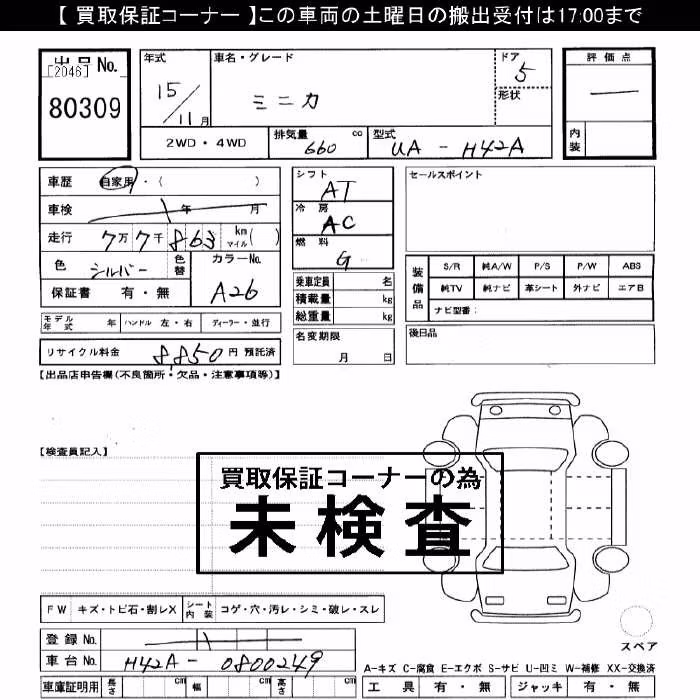 【 買取保証コーナー 】この車両の土曜日の搬出受付は17:00まで
出品 No.
[2046]
80309
年式
15/11月
車名・グレード
ミニカ
ドア
5
形状
評価点
—
内装
2WD・4WD
排気量 660 cc
型式 UA - H42A
車歴 自家用・( )
車検 年 月
走行 7万7千863 km マイル( )
色 シルバー
色替
カラーNo.
A26
保証書 有・無
シフト
AT
冷房
AC
燃料
G
セールスポイント
装備品
S/R 純A/W P/S P/W ABS
純TV 純ナビ 革シート 外ナビ エアB
ナビ型番:
乗車定員 名
積載量 kg
総重量 kg
モデル年式 年 ハンドル 左・右 ディーラー・並行
名変期限
月 日
後日品
リサイクル料金 8,850円 預託済
【出品店申告欄(不良箇所・欠品・注意事項等)】
【検査員記入】
買取保証コーナーの為
未検査
FW キズ・トビ石・割レX
シート内装 コゲ・穴・汚レ・シミ・破レ・スレ
スペア
登録 No.
車台 No. H42A - 0800249
A-キズ C-腐食 E-エクボ S-サビ U-凹ミ W-補修 XX-交換済
車庫証明用 長さ cm 幅 cm 高さ cm
工具 有・無 ジャッキ 有・無